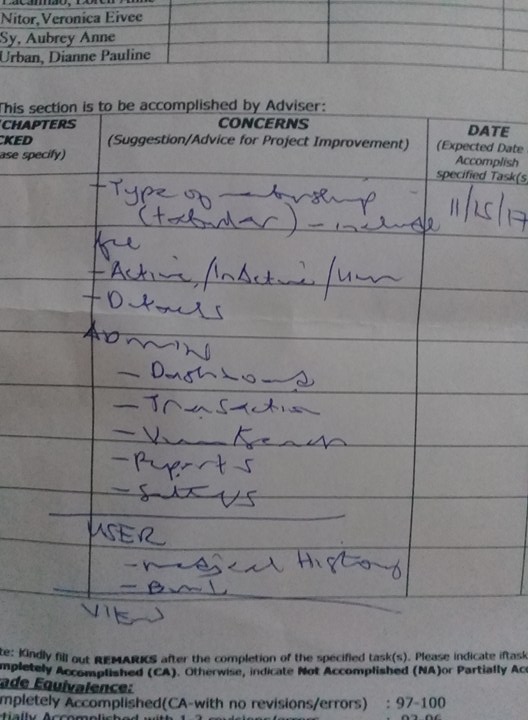 Nitor,Veronica Eivee
Sy, Aubrey Anne
Urban, Dianne Pauline
This section is to be accomplished by Adviser:
CHAPTERS
CKED
ase specify)
CONCERNS
(Suggestion/Advice for Project Improvement)
DATE
(Expected Date
Accomplish
specified Task(s
- Type of membership
(tabular) - include
fee
11/25/17
- Active/InActive/
- Details
ADMIN
- Dashboard
- Transaction
- Reports
- Settings
USER
- Medical History
VIEW
te: Kindly fill out REMARKS after the completion of the specified task(s). Please indicate iftask
mpletely Accomplished (CA). Otherwise, indicate Not Accomplished (NA)or Partially Acc
ade Equivalence:
mpletely Accomplished(CA-with no revisions/errors) : 97-100